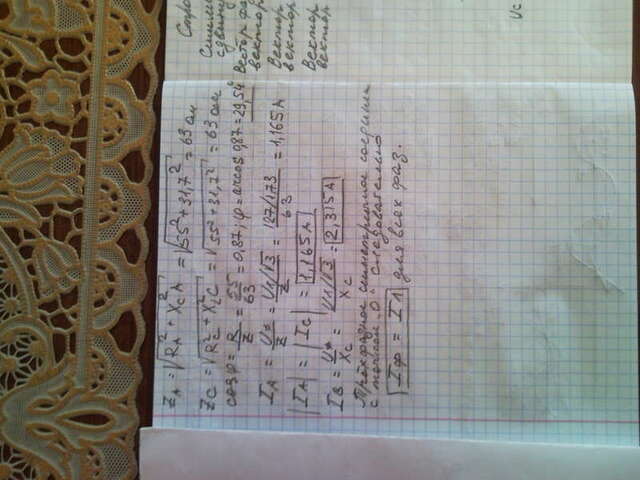 Z_A = √(R_A² + X_CA²) = √(55² + 31,7²) = 63 ом
Z_C = √(R_C² + X_LC²) = √(55² + 31,7²) = 63 ом
cosφ = R/Z = 55/63 = 0,87; φ = arccos 0,87 = 29,54
I_A = Uф/Z = U1/√3/Z = 127/1,73/63 = 1,165А
|I_A| = |I_C| = 1,165А
I_B = Uф/X_C = U1/√3/X_C = 2,315А
Трёхфазное симметричное соединен
с точкой "0" следовательно
Iф = I1 для всех фаз.
Спро
Симме
сдвину
Вектор фа
вектор
Вектор
вектор
Вектор
вектор
Uc